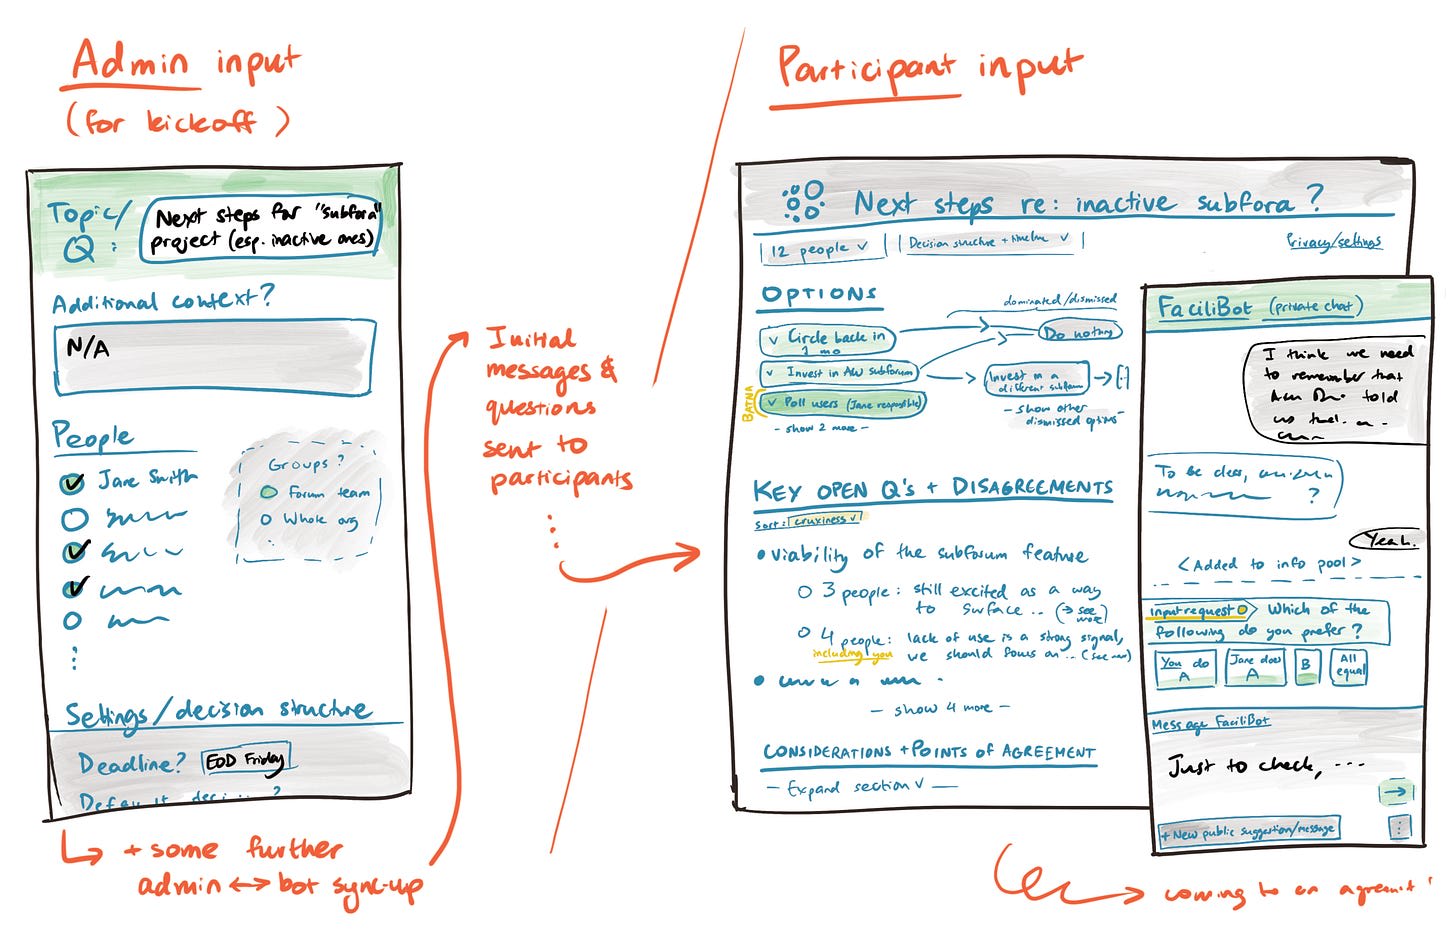 Admin input
(for kickoff)
Topic/
Q:
Next steps for "subfora"
project (esp. inactive ones)
Additional context?
N/A
People
Jane Smith
Groups?
Forum team
Whole org
Settings/decision structure
Deadline? EOD Friday
+ some further
admin ↔ bot sync-up
Initial
messages &
questions
sent to
participants
Participant input
Next steps re: inactive subfora?
12 people ∨
Decision structure + timeline ∨
Privacy/settings
OPTIONS
dominated/dismissed
✓ Circle back in
1 mo
Do nothing
✓ Invest in AW subforum
Invest in a
different subforum
[:]
BATNA
✓ Poll users (Jane responsible)
- show 2 more -
- show other
dismissed options -
KEY OPEN Q's + DISAGREEMENTS
Sort: cruxiness ∨
• Viability of the subforum feature
○ 3 people: still excited as a way
to surface... (→ see
more)
○ 4 people: lack of use is a strong signal,
including you we should focus on... (see more)
- show 4 more -
CONSIDERATIONS + POINTS OF AGREEMENT
- Expand section ∨ -
FaciliBot (private chat)
I think we need
to remember that
told
us that
To be clear, ?
Yeah.
<Added to info pool>
Input request Which of the
following do you prefer?
You do
A
Jane does
A
B
All
equal
Message FaciliBot
Just to check, ---
→
+ New public suggestion/message
⋮
coming to an agreement